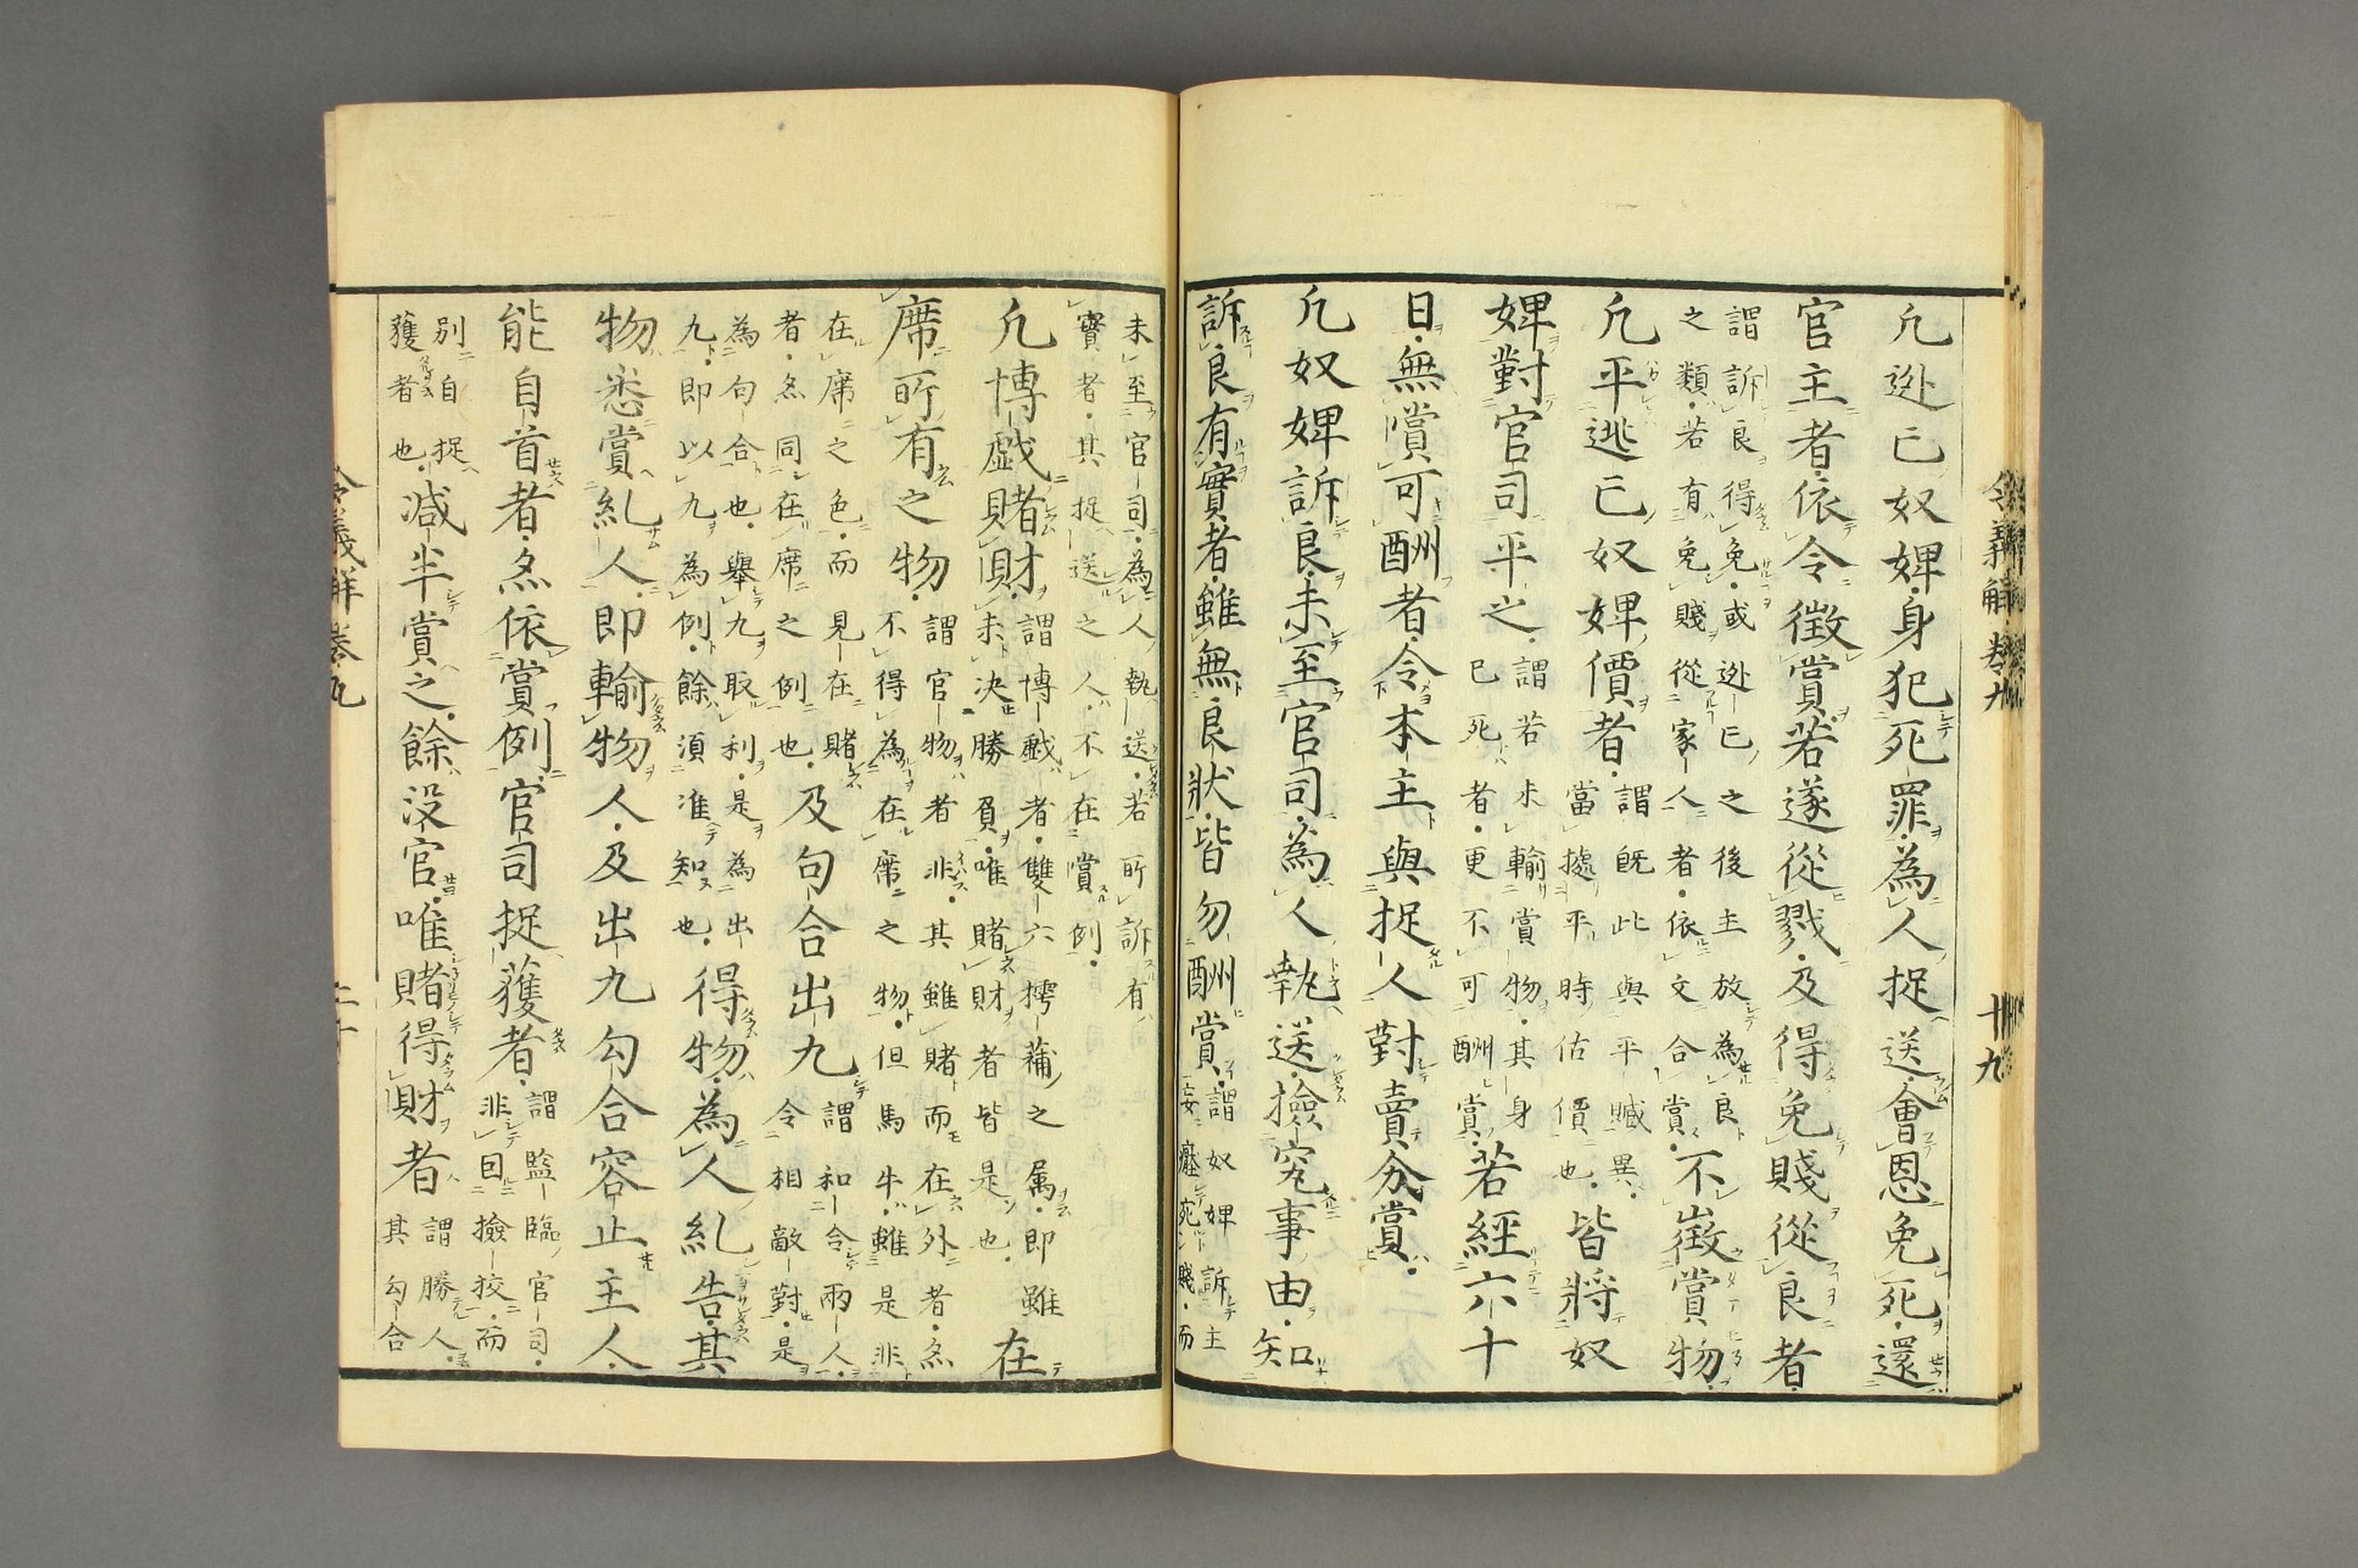 令義解 巻九 十九
凢迯亡奴婢身犯死罪為人捉送會恩免死還
官主者依令徴賞若遂從戮及得免賤從良者
謂訴良得免或迯亡之後主放為良
之類若有免賤從家人者依文合賞
不徴賞物
凢平逃亡奴婢價者
謂既此與平贓異
當據平時估價也
皆將奴
婢對官司平之
謂若未輸賞物其身
已死者更不可酬賞
若經六十
日無賞可酬者令本主與捉人對賣分賞
凢奴婢訴良未至官司為人執送撿究事由知
訴良有實者雖無良狀皆勿酬賞
謂奴婢訴主
妄
賤而
未至官司為人執送若所訴有
實者其捉送之人不在賞例
凢博戯賭財
謂博戯者雙六樗蒲之属即雖
未決勝負唯賭財者皆是也
在
席所有之物
謂官物者非其雖賭而在外者亦
不得為在席之物但馬牛雖是非
在席之色而見在賭
者亦同在席之例也
及句合出九
謂和合兩人
令相敵對是
為句合也舉九取利是為出
九即以九為例餘須准知也
得物為人糺告其
物悉賞糺人即輸物人及出九勾合容止主人
能自首者亦依賞例官司捉獲者
謂監臨官司
非因撿挍而
別自捉
獲者也
減半賞之餘没官唯賭得財者
謂勝人
其勾合
令義解 巻九 二十